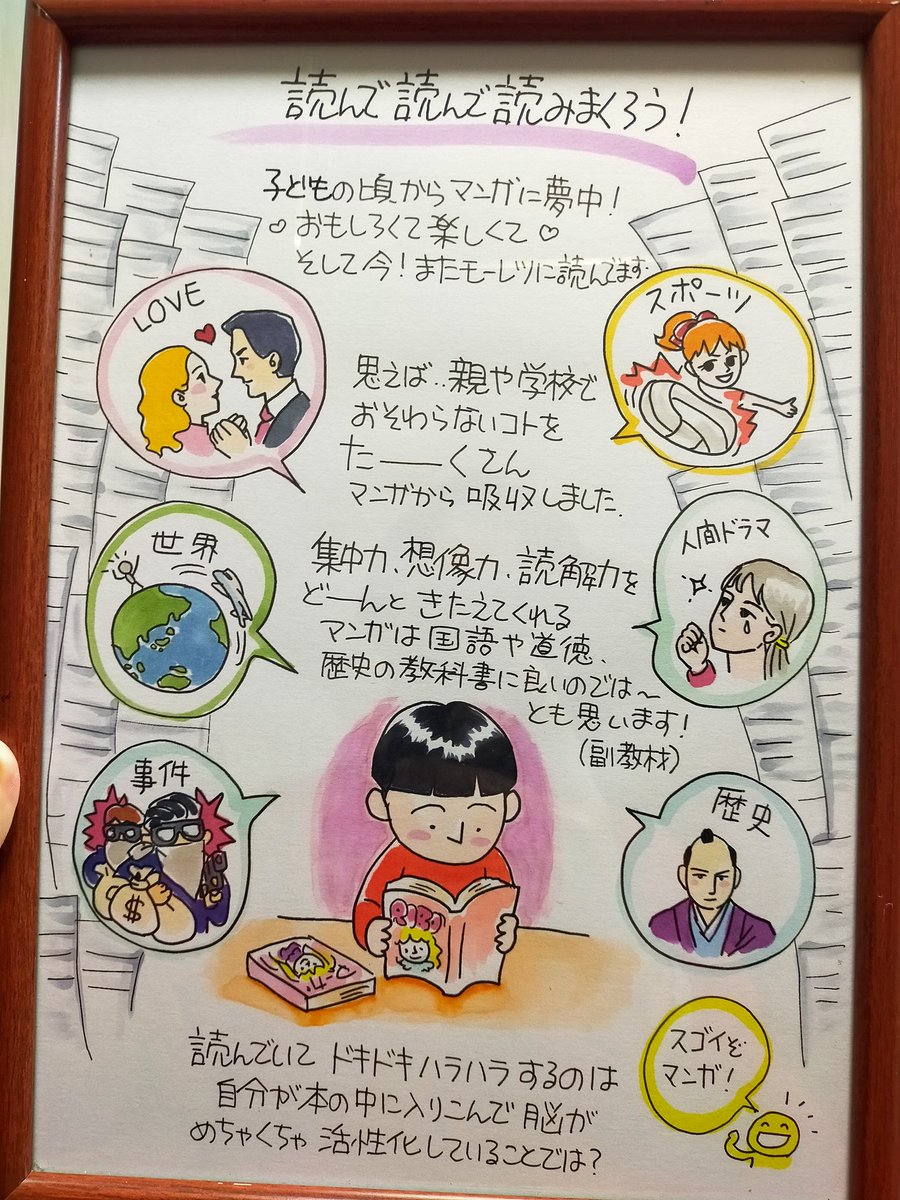 読んで読んで読みまくろう!
子どもの頃からマンガに夢中!
♡おもしろくて楽しくて♡
そして今!またモーレツに読んでます
LOVE
スポーツ
思えば‥親や学校で
おそわらないコトを
たーーくさん
マンガから吸収しました.
世界
人間ドラマ
集中力、想像力、読解力を
どーんときたえてくれる
マンガは国語や道徳、
歴史の教科書に良いのでは〜
とも思います!
(副教材)
事件
歴史
$
読んでいてドキドキハラハラするのは
自分が本の中に入りこんで脳が
めちゃくちゃ活性化していることでは?
スゴイぞ
マンガ!